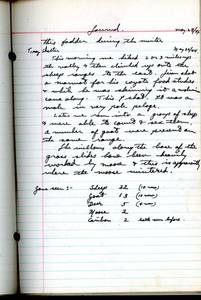 Journal
this fodder during the winter
This morning we hiked 2 or 3 miles up
the valley & then climbed up onto the
sheep ranges to the east. Jim shot
a marmot for his coyote food studies
& while he was skinning it a
came along. This I shot. It was a
male in very pale pelage.
Later we ran into a group of sheep
& were able to count & sex them
a number of goat were present on
the same range.
The willows along the base of the
grass slides have been heavily
worked by moose & this is apparently
where the moose wintered.
Game seen:- Sheep 22
Goat 13
Deer 5
Moose 2
Caribou 2